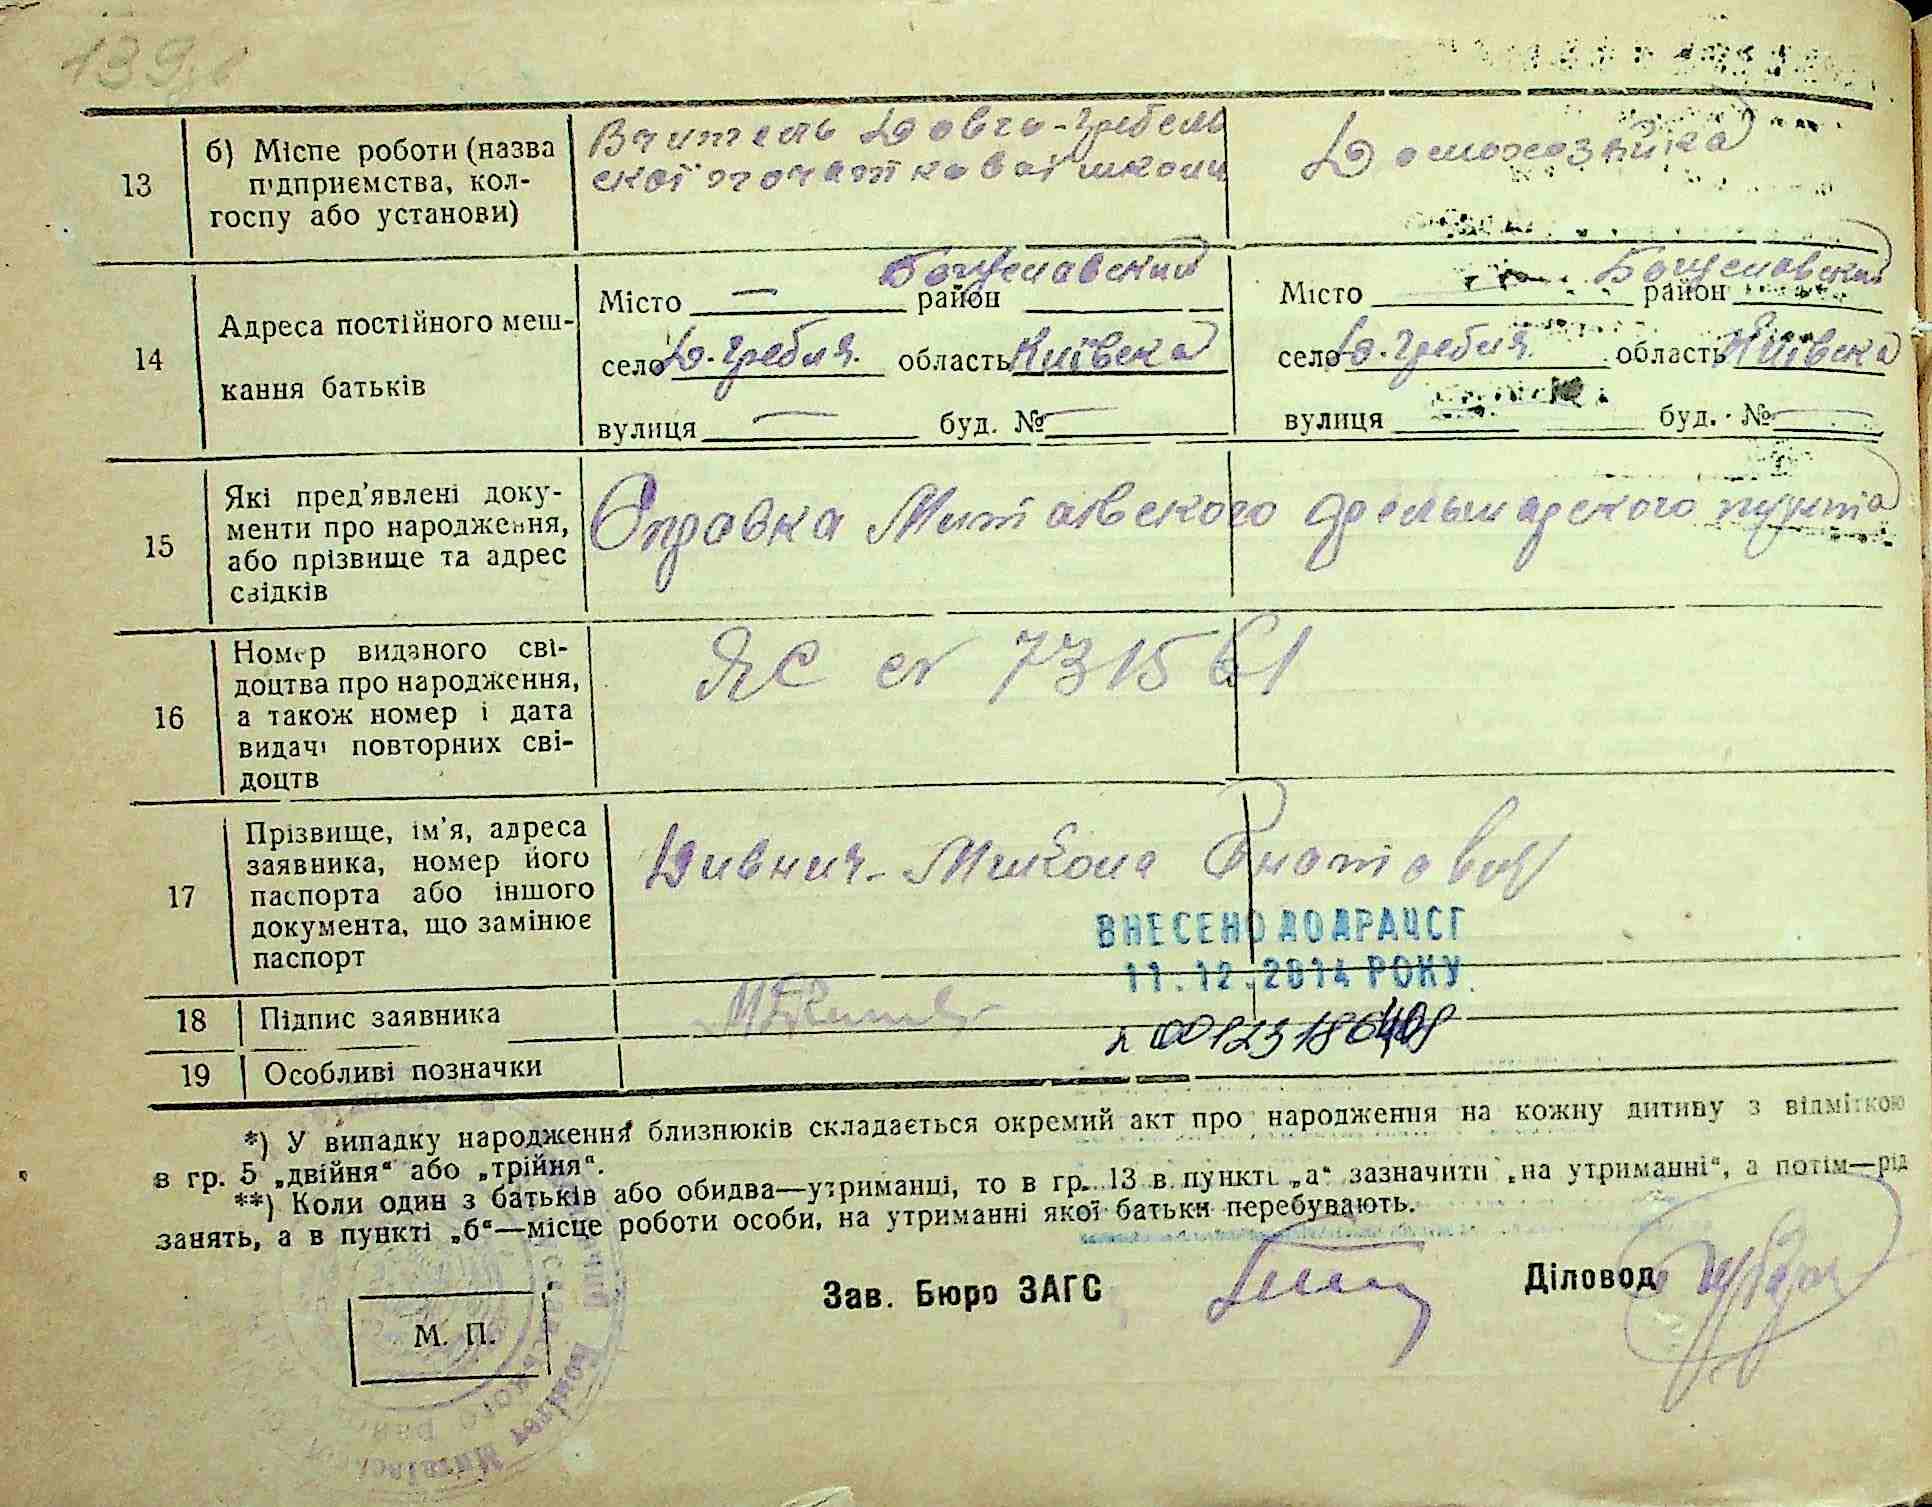 139
13
б) Місце роботи (назва
підприємства, кол-
госпу або установи)
Вчитель Довго-Гребель
скої початкової школи
Домохозяйка
14
Адреса постійного меш-
кання батьків
Місто — район Богуславский
село Д. Гребля. область Київска
вулиця — буд. № —
Місто район Богуславский
село Д. Гребля. область Київска
вулиця буд. № —
15
Які пред'явлені доку-
менти про народження,
або прізвище та адрес
свідків
Справка Митаївского фельшарского пункта
16
Номер виданого сві-
доцтва про народження,
а також номер і дата
видачі повторних сві-
доцтв
ЯС № 731561
17
Прізвище, ім'я, адреса
заявника, номер його
паспорта або іншого
документа, що замінює
паспорт
Дивнич Микола Гнатович
ВНЕСЕНО ДО ДРАЦСГ
11.12.2014 РОКУ
18
Підпис заявника
19
Особливі позначки
*) У випадку народження близнюків складається окремий акт про народження на кожну дитину з відміткою
в гр. 5 „двійня“ або „трійня“.
**) Коли один з батьків або обидва—утриманці, то в гр. 13 в пункті „а“ зазначити „на утриманні“, а потім—рід
занять, а в пункті „б“—місце роботи особи, на утриманні якої батьки перебувають.
М. П.
Зав. Бюро ЗАГС
Діловод